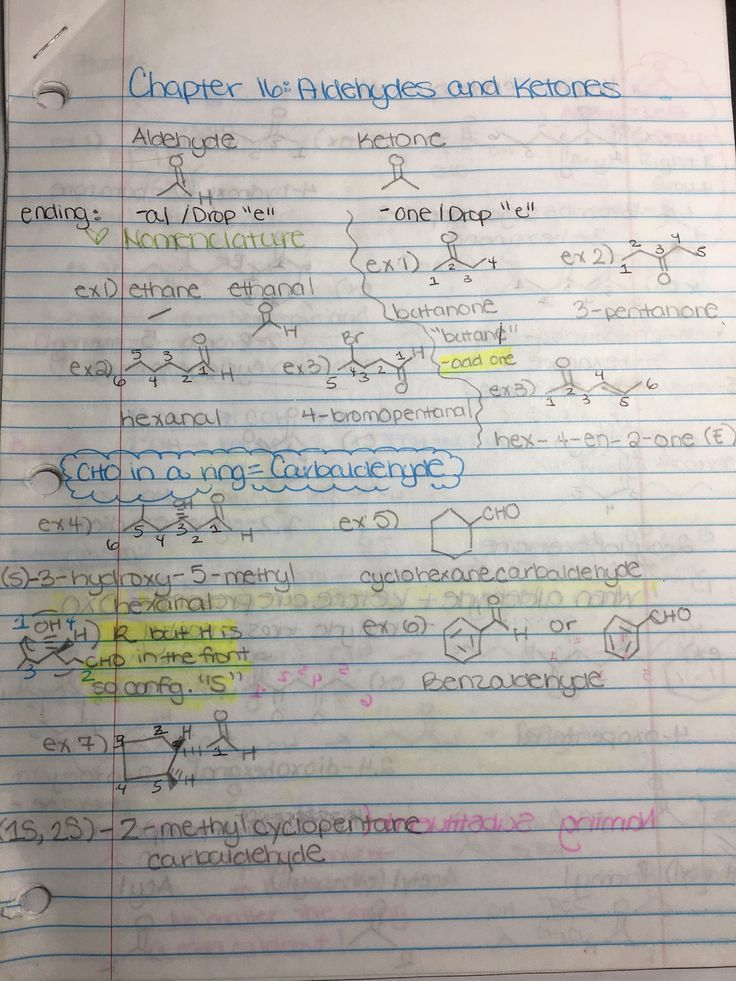 Chapter 16: Aldehydes and Ketones
Aldehyde Ketone
O O
H
ending: -al / Drop "e" -one / Drop "e"
♡ Nomenclature
ex 1) O 1 2 3 4
ex 2) 1 2 3 4 5 O
ex 1) ethane ethanal
O H
butanone 3-pentanone
"butane"
-odd one
ex 2) 6 5 4 3 2 1 O H
ex 3) Br 5 4 3 2 1 H O
ex 3) O 1 2 3 4 5 6
hexanal 4-bromopentanal
hex-4-en-2-one (E)
CHO in a ring = Carbaldehyde
ex 4) OH O 6 5 4 3 2 1 H
ex 5) CHO
(S)-3-hydroxy-5-methyl cyclohexanecarbaldehyde
hexanal
1 OH 4 H) R but H is
3 2 CHO in the front
so confg. "S"
ex 6) O H or CHO
Benzaldehyde
ex 7) 3 2 H O 1 H
4 5 H
(1S, 2S) - 2-methylcyclopentane
carbaldehyde